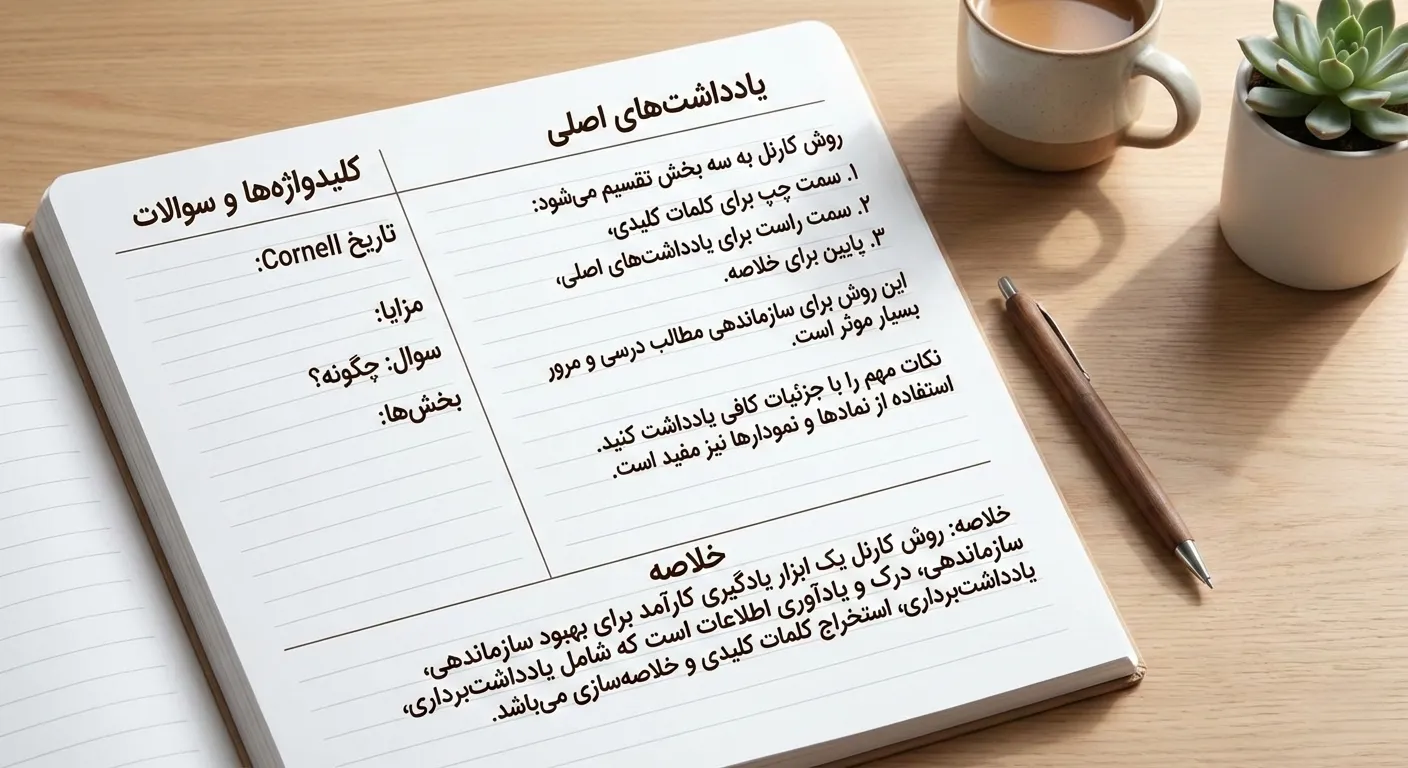 یادداشت‌های اصلی
روش کارنل به سه بخش تقسیم می‌شود:
۱. سمت چپ برای کلمات کلیدی،
۲. سمت راست برای یادداشت‌های اصلی،
۳. پایین برای خلاصه.
این روش برای سازماندهی مطالب درسی و مرور
بسیار موثر است.
نکات مهم را با جزئیات کافی یادداشت کنید.
استفاده از نمادها و نمودارها نیز مفید است.
کلیدواژه‌ها و سوالات
تاریخ Cornell:
مزایا:
سوال: چگونه؟
بخش‌ها:
خلاصه
خلاصه: روش کارنل یک ابزار یادگیری کارآمد برای بهبود سازماندهی،
سازماندهی، درک و یادآوری اطلاعات است که شامل یادداشت‌برداری،
یادداشت‌برداری، استخراج کلمات کلیدی و خلاصه‌سازی می‌باشد.